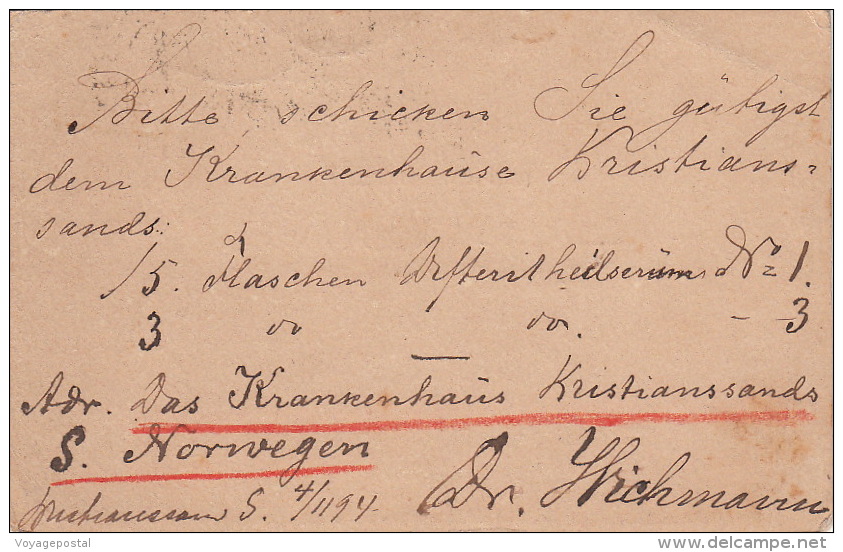 Bitte schicken Sie gütigst
dem Krankenhause Kristians=
sands:
15. Flaschen No 1.
3 do do. — 3
Adr. Das Krankenhaus Kristianssands
S. Norwegen
S. 4/11 94. Dr. Wichmann
Voyagepostal
www.delcampe.net